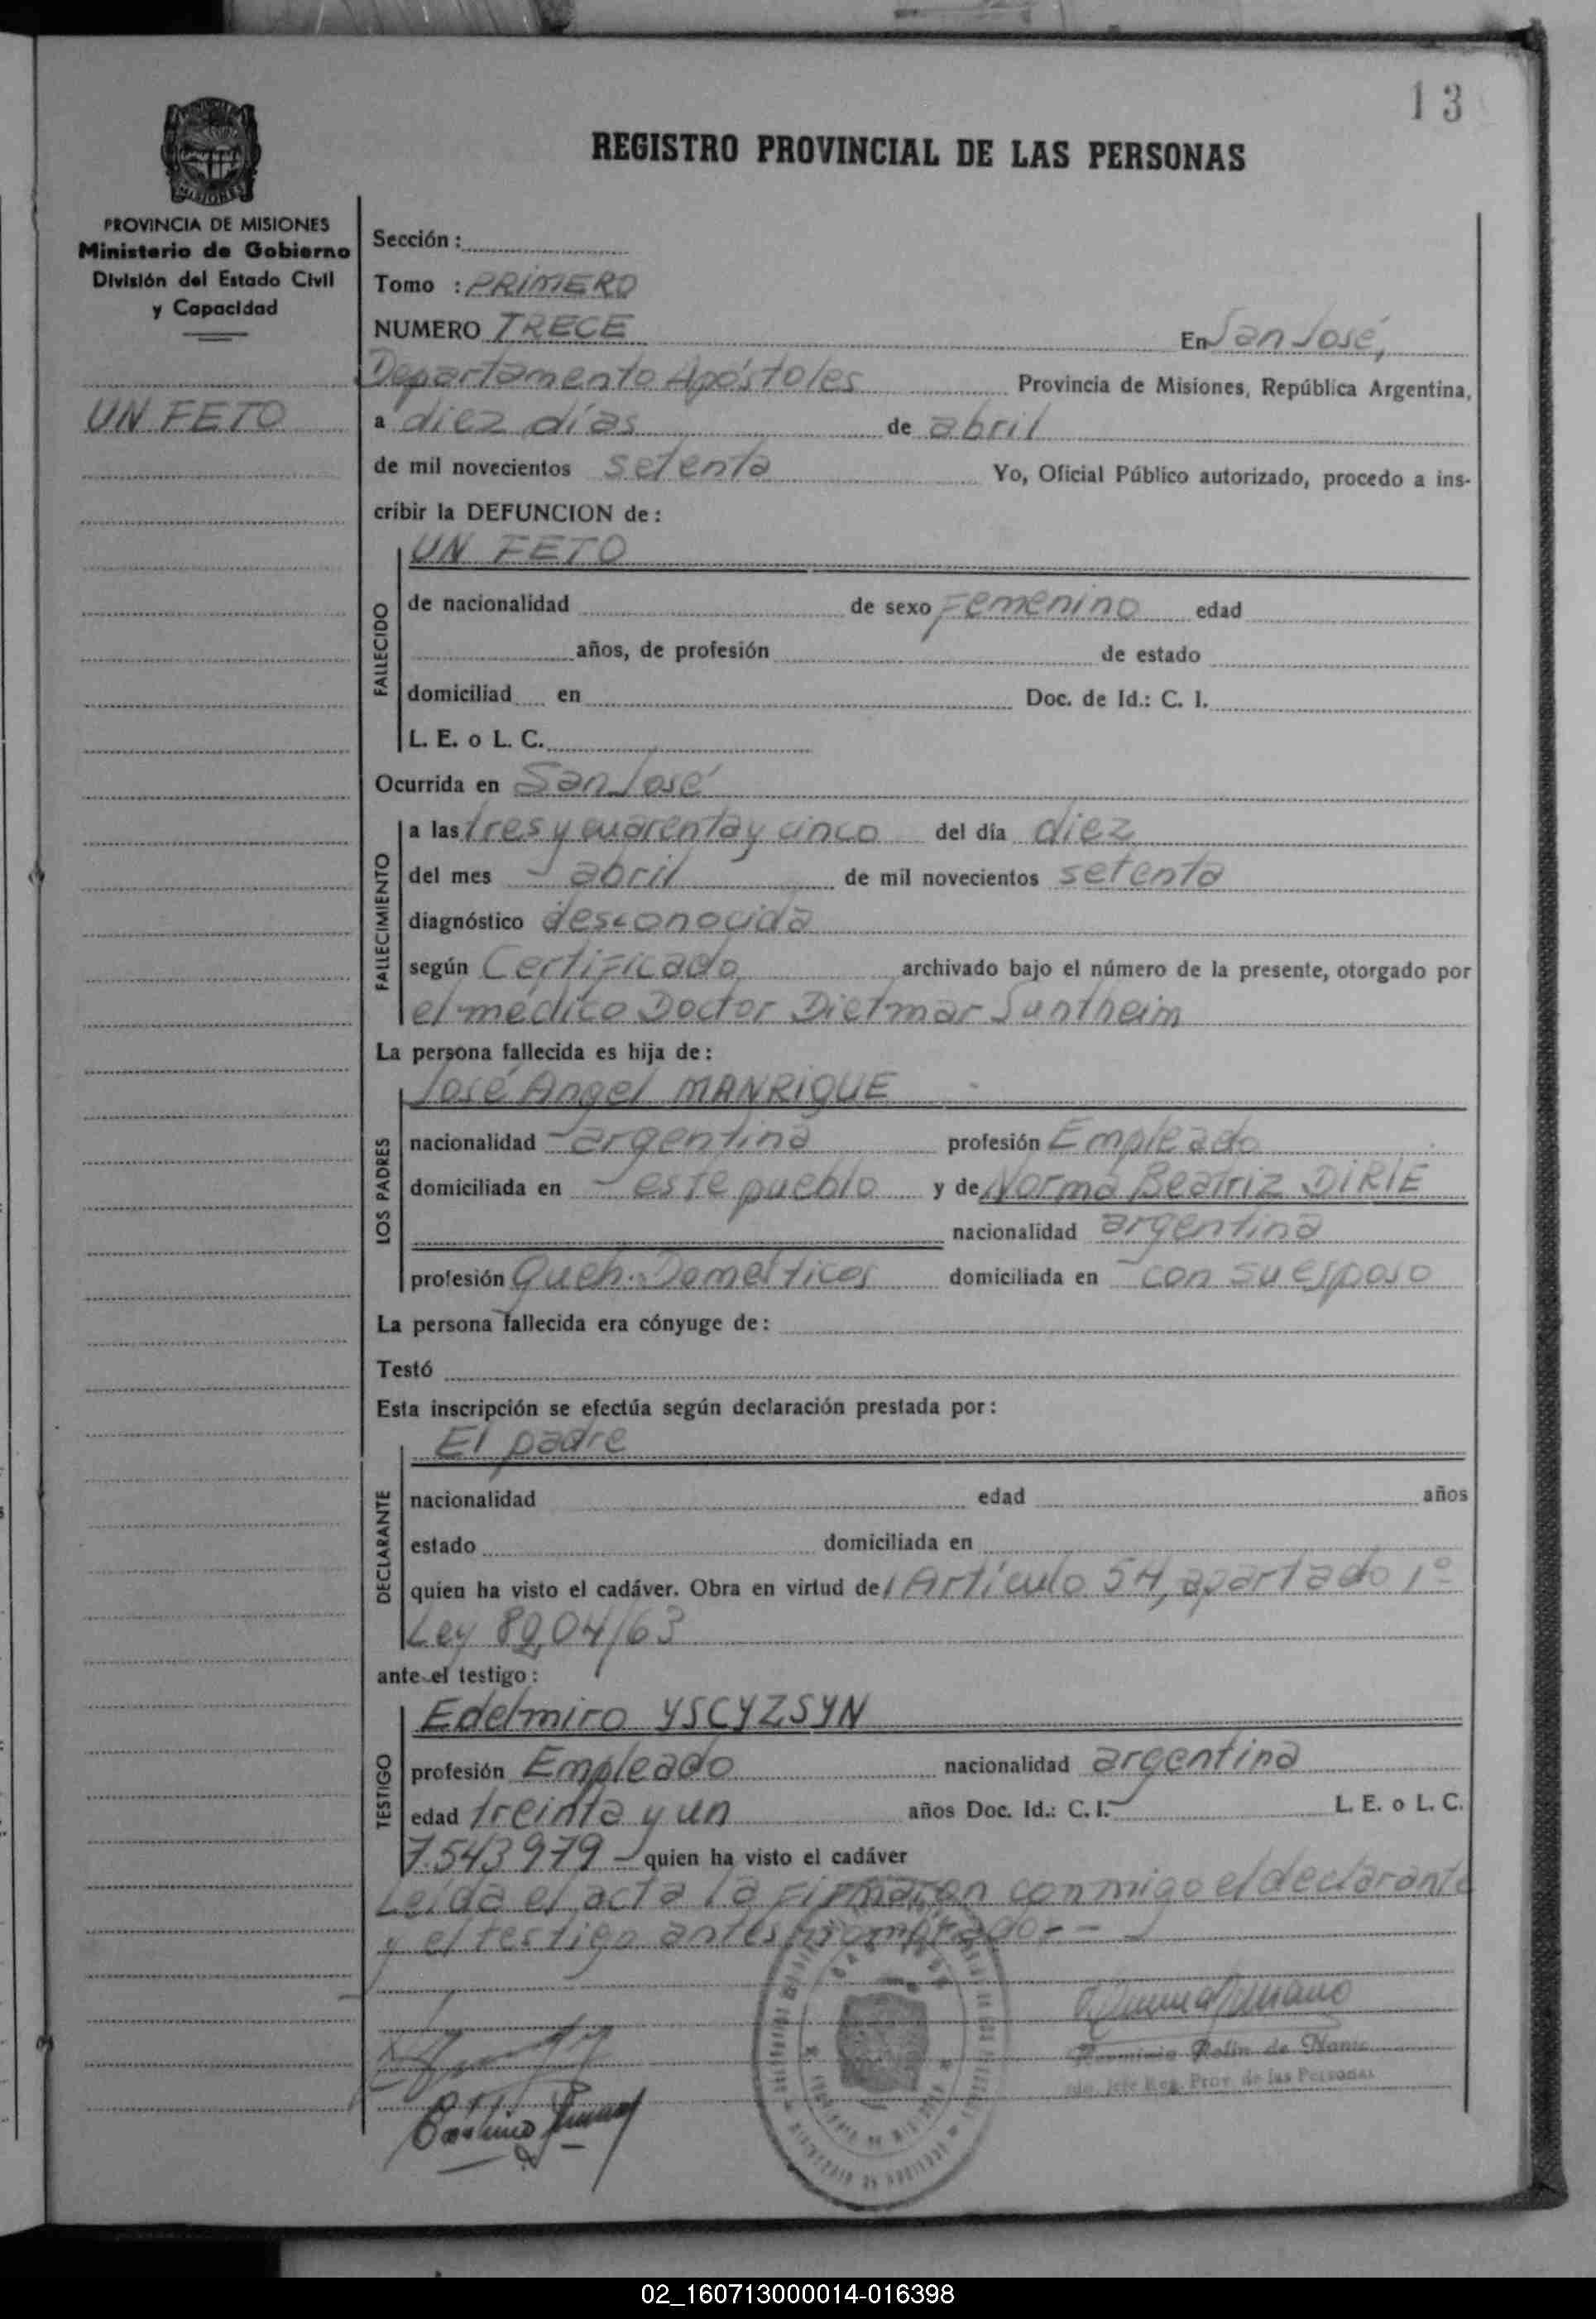 13
REGISTRO PROVINCIAL DE LAS PERSONAS
PROVINCIA DE MISIONES
Ministerio de Gobierno
División del Estado Civil
y Capacidad
UN FETO
Sección :
Tomo : PRIMERO
NUMERO TRECE En San José,
Departamento Apóstoles Provincia de Misiones, República Argentina,
a diez días de abril
de mil novecientos setenta Yo, Oficial Público autorizado, procedo a ins-
cribir la DEFUNCION de :
UN FETO
FALLECIDO
de nacionalidad de sexo Femenino edad
años, de profesión de estado
domiciliad en Doc. de Id.: C. I.
L. E. o L. C.
Ocurrida en San José
FALLECIMIENTO
a las tres y cuarenta y cinco del día diez
del mes abril de mil novecientos setenta
diagnóstico desconocida
según Certificado archivado bajo el número de la presente, otorgado por
el médico Doctor Dietmar Suntheim
La persona fallecida es hija de :
LOS PADRES
José Angel MANRIQUE
nacionalidad argentina profesión Empleado
domiciliada en este pueblo y de Norma Beatriz DIRIE
nacionalidad argentina
profesión Queh. Domésticos domiciliada en con su esposo
La persona fallecida era cónyuge de :
Testó
Esta inscripción se efectúa según declaración prestada por :
DECLARANTE
El padre
nacionalidad edad años
estado domiciliada en
quien ha visto el cadáver. Obra en virtud del Artículo 54, apartado 1º
Ley 82,04/63
ante el testigo :
TESTIGO
Edelmiro YSCYZSYN
profesión Empleado nacionalidad argentina
edad treinta y un años Doc. Id.: C. I. L. E. o L. C.
7.543979 - quien ha visto el cadáver
Leída el acta la firmaron conmigo el declarante
y el testigo antes nombrado.-
Rolin de
Jefe Reg. Prov. de las Personas
02_160713000014-016398